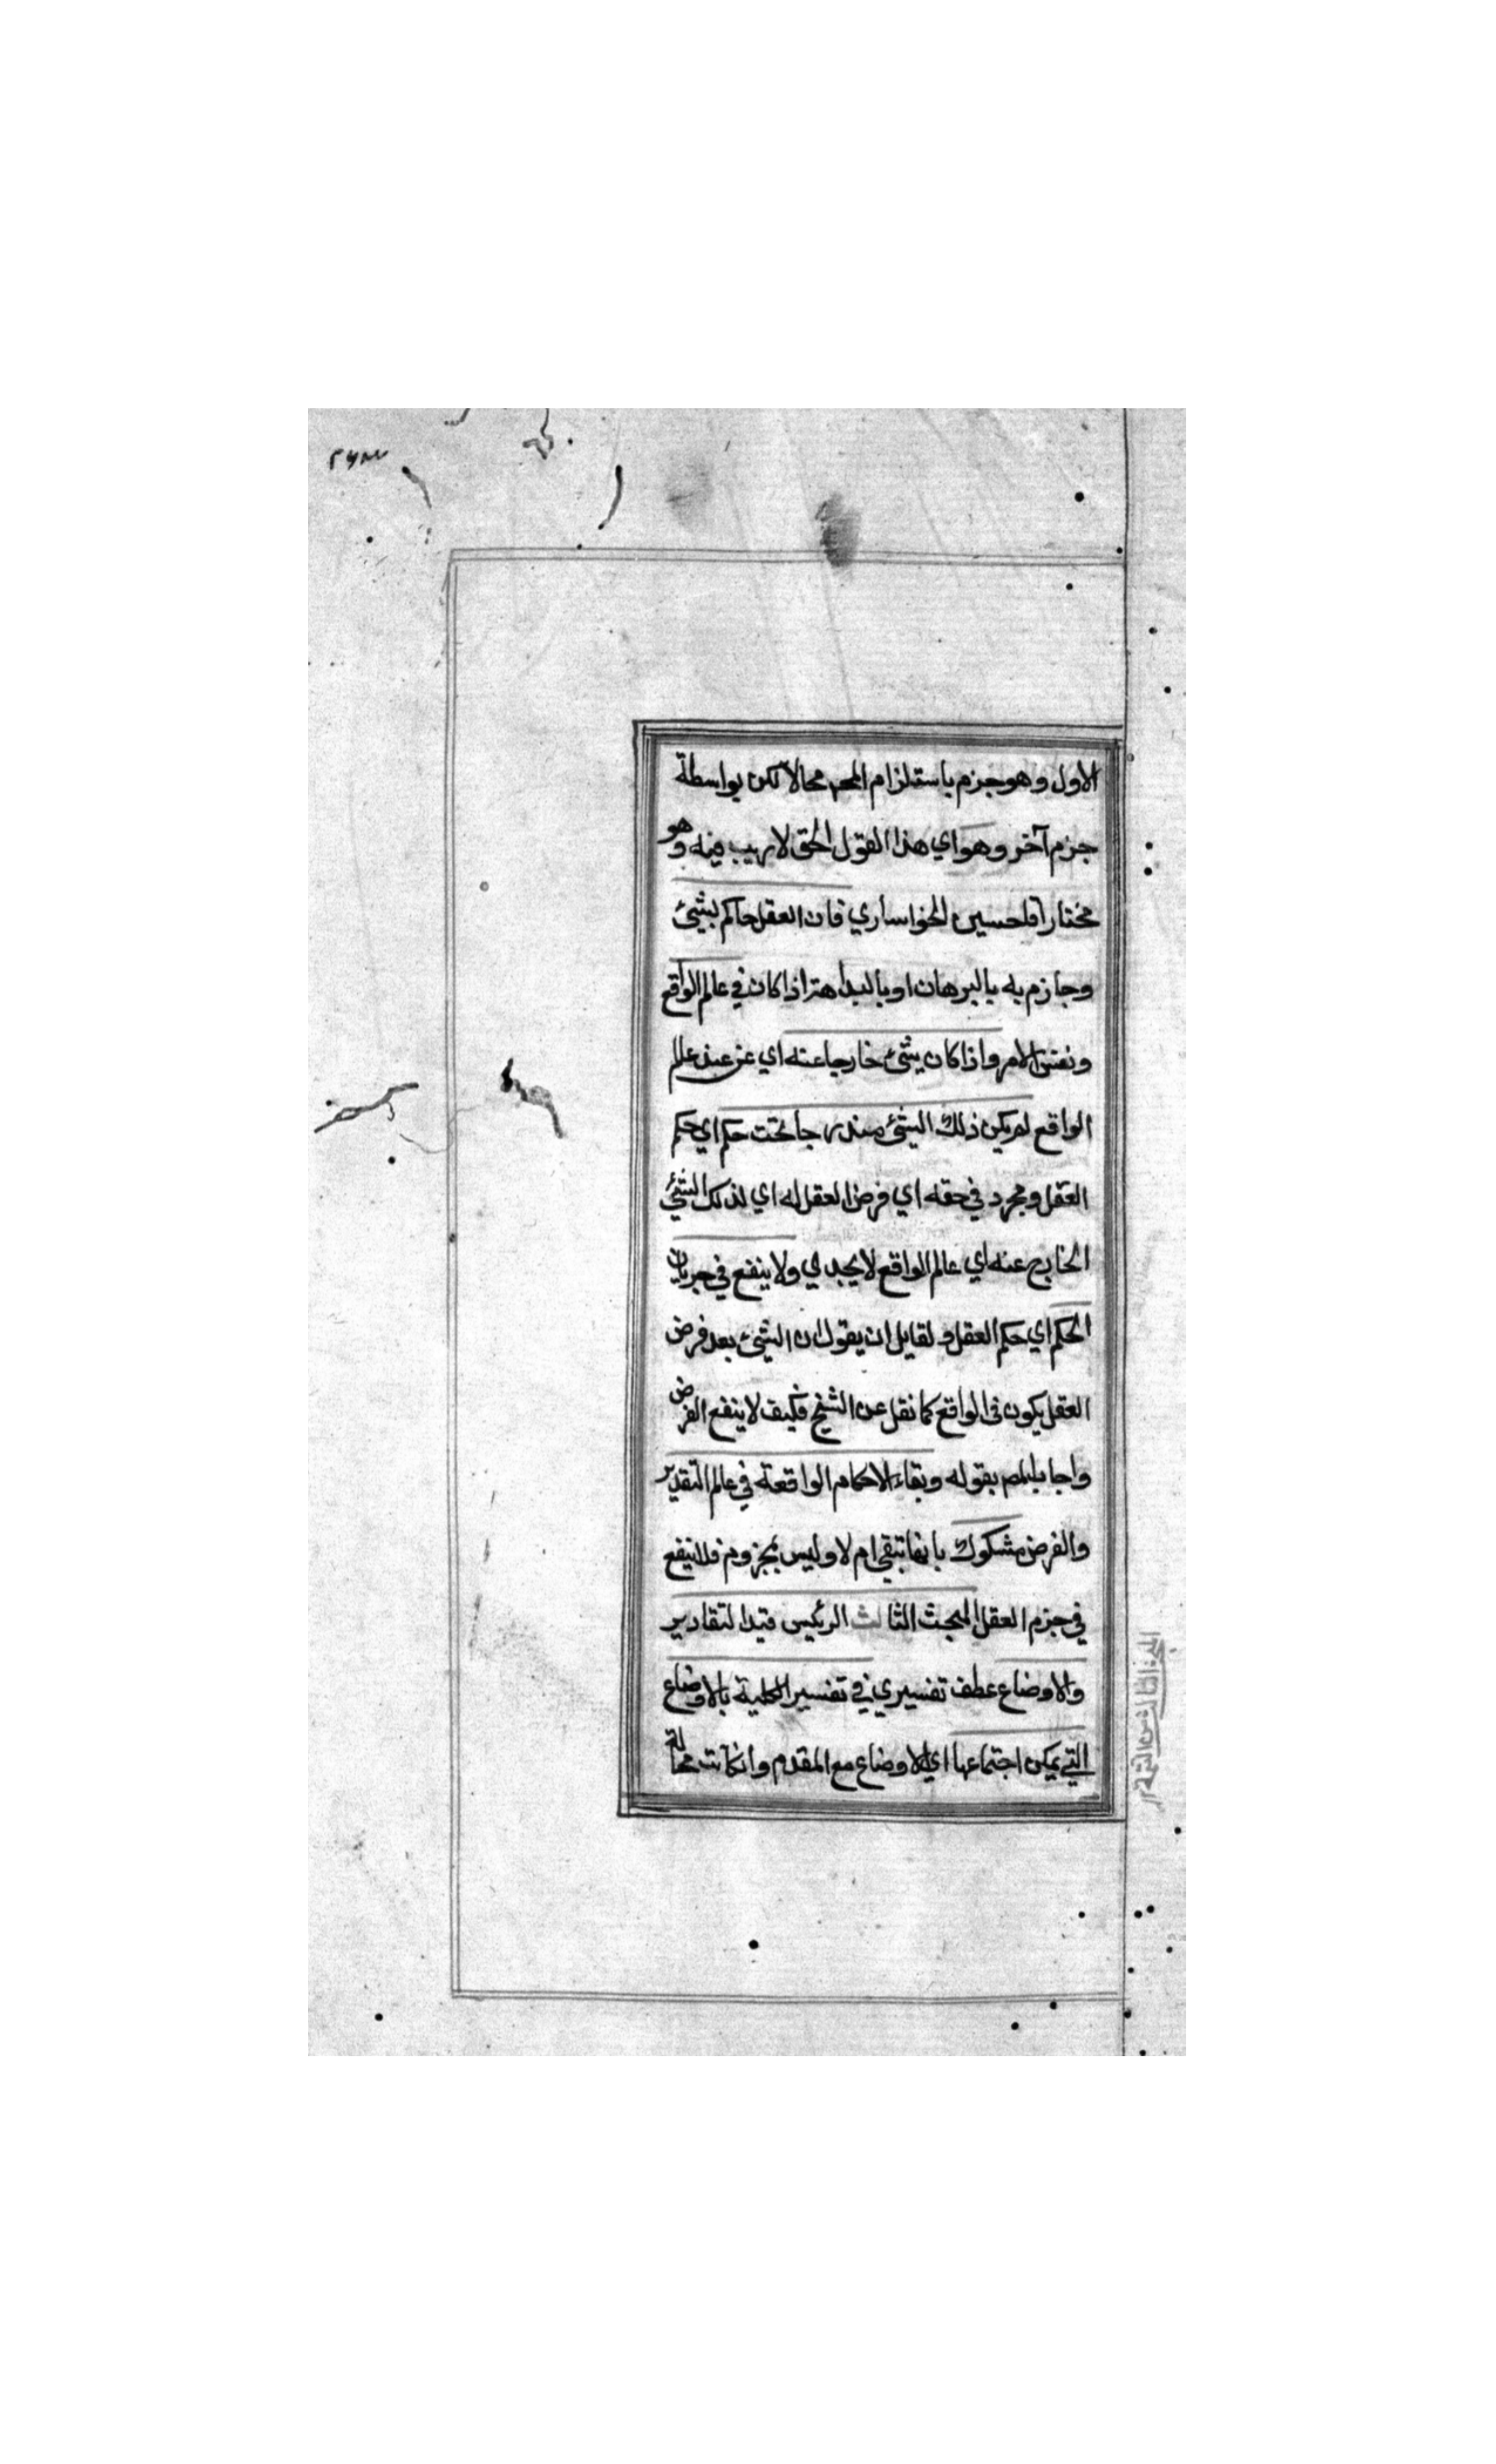 الاول وهو جزم باستلزام المحـ محالا لكن بواسطة
جزم آخر وهو اي هذا القول الحق لاريب فيه وهو
مختار آقا حسين الخوانساري فان العقل حاكم بشيئ
وجازم به بالبرهان او بالبداهة اذا كان في عالم الواقع
ونفس الامر واذا كان شيئ خارجا عنه اي عن عند عالم
الواقع لم يكن ذلك الشيئ مندرجا تحت حكم اي حكم
العقل ومجرد في حقه اي فرض العقل له اي لذلك الشيئ
الخارج عنه اي عالم الواقع لا يجدي ولا ينفع في جريان
الحكم اي حكم العقل ولقايل ان يقول ان الشيئ بعد فرض
العقل يكون في الواقع كما نقل عن الشيخ فكيف لا ينفع الفرض
واجاب المص بقوله وبقاء الاحكام الواقعة في عالم التقدير
والفرض مشكوك بانها تبقي ام لا وليس بمجزوم فلا ينفع
في جزم العقل المبحث الثالث الرئيس قيد التقادير
والاوضاع عطف تفسيري في تفسير الكلية بالاوضاع
التي يمكن اجتماعها اي الاوضاع مع المقدم وان كانت محالة